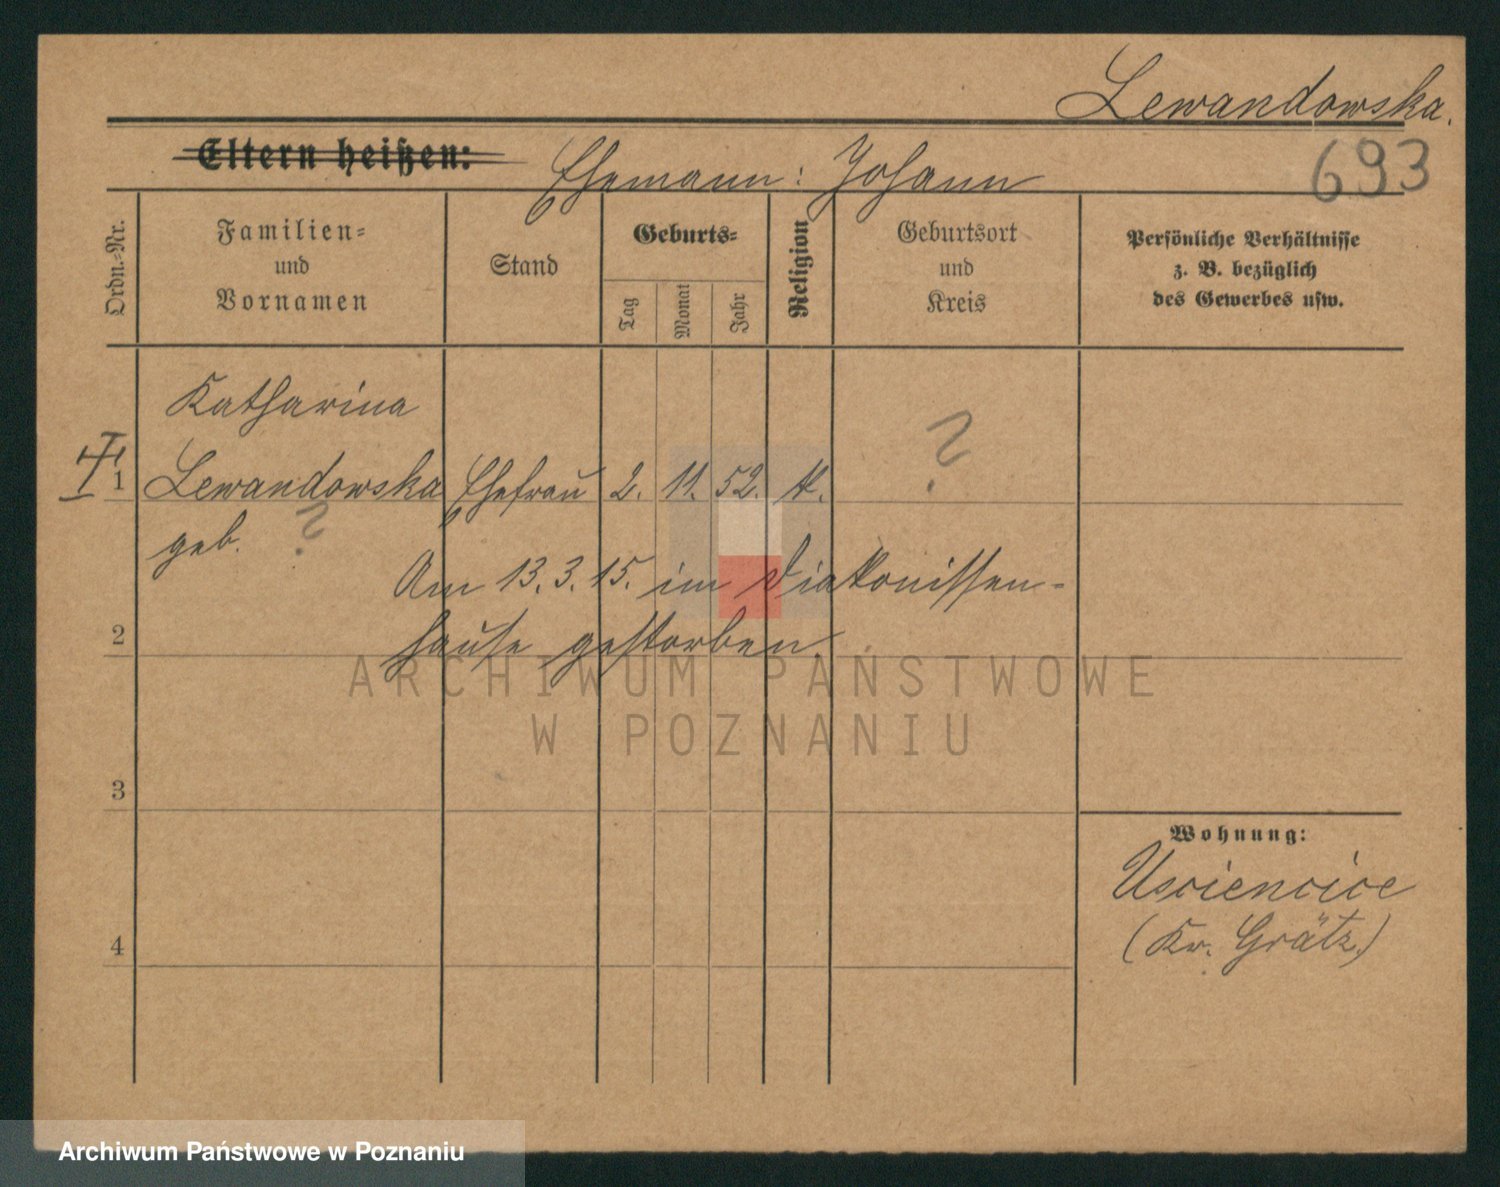 Lewandowska.
693
Eltern heißen:
Ehemann: Johann
Ordn.-Nr.
Familien-
und
Vornamen
Stand
Geburts-
Tag
Monat
Jahr
Religion
Geburtsort
und
Kreis
Persönliche Verhältnisse
z. B. bezüglich
des Gewerbes usw.
Katharina
1 Lewandowska Ehefrau 2. 11. 52. K. ?
geb. ?
Am 13. 3. 15. im Diakonissen-
2
hause gestorben.
ARCHIWUM PAŃSTWOWE
W POZNANIU
3
Wohnung:
Usciencice
(Kr. Grätz.)
4
Archiwum Państwowe w Poznaniu